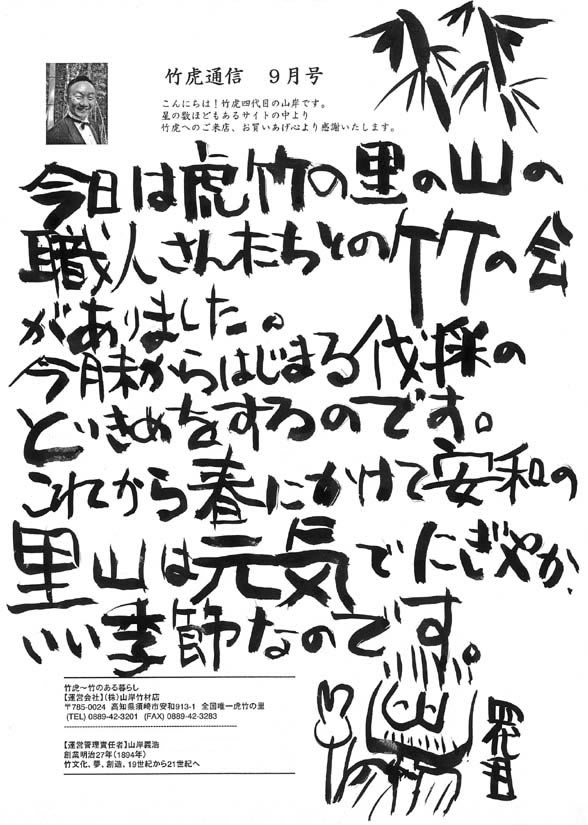 竹虎通信 9月号
こんにちは!竹虎四代目の山岸です。
星の数ほどもあるサイトの中より
竹虎へのご来店、お買いあげ心より感謝いたします。
今日は虎竹の里の山の
職人さんたちとの竹の会
がありました。
今月末からはじまる伐採の
とりきめをするのです。
これから春にかけて安和の
里山は元気でにぎやか、
いい季節なのです。
竹虎~竹のある暮らし
【運営会社】(株)山岸竹材店
〒785-0024 高知県須崎市安和913-1 全国唯一虎竹の里
(TEL) 0889-42-3201 (FAX) 0889-42-3283
【運営管理責任者】山岸義浩
創業明治27年(1894年)
竹文化、夢、創造、19世紀から21世紀へ
四代目